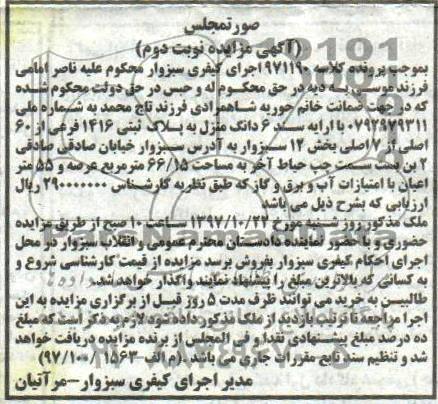 صورتمجلس
(آگهی مزایده نوبت دوم)
بموجب پرونده کلاسه ۹۷۱۱۹۰ اجرای کیفری سبزوار محکوم علیه ناصر امامی
فرزند موسی به دیه در حق محکوم له و حبس در حق دولت محکوم شده
که در جهت ضمانت خانم حوریه شاهمرادی فرزند تاج محمد به شماره ملی
۰۷۹۲۸۷۹۳۱۱ با ارایه سند ۶ دانک منزل به پلاک ثبتی ۱۴۱۶ فرعی از ۶۰
اصلی از ۷ اصلی بخش ۱۲ سبزوار به آدرس سبزوار خیابان صادقی صادقی
۲ بن بست سمت چپ حیاط آخر به مساحت ۶۶/۱۵ مترمربع عرصه و ۵۵ متر
اعیان با امتیازات آب و برق و گاز که طبق نظریه کارشناس ۲۹۰۰۰۰۰۰۰ ریال
ارزیابی که بشرح ذیل می باشد
ملک مذکور روز شنبه مورخ ۱۳۹۷/۱۰/۲۲ ساعت ۱۰ صبح از طریق مزایده
حضوری و با حضور نماینده دادستان محترم عمومی و انقلاب سبزوار در محل
اجرای احکام کیفری سبزوار بفروش برسد مزایده از قیمت کارشناسی شروع و
به کسانی که بالاترین مبلغ را پیشنهاد نمایند واگذار خواهد شد.
طالبین به خرید می توانند ظرف مدت ۵ روز قبل از برگزاری مزایده به این
اجرا مراجعه تا ترتیب بازدید از ملک مذکور داده شود لازم به ذکر است که مبلغ
ده درصد مبلغ پیشنهادی نقدا و فی المجلس از برنده مزایده دریافت خواهد
شد و تنظیم سند تابع مقررات جاری می باشد. (م الف-۹۷/۱۰۰/۱۵۶۳)
مدیر اجرای کیفری سبزوار-مرآتیان